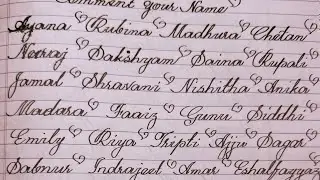 Comment Your Name
Ayana Rubina Madhura Chetan
Neeraj Sakshyam Saina Rupali
Jamal Shravani Nishitha Anika
Madara Faaiz Gunu Siddhi
Emily Riya Tripti Ajju Sagar
Sabnur Indrajeel Amar Eshalfayyaz